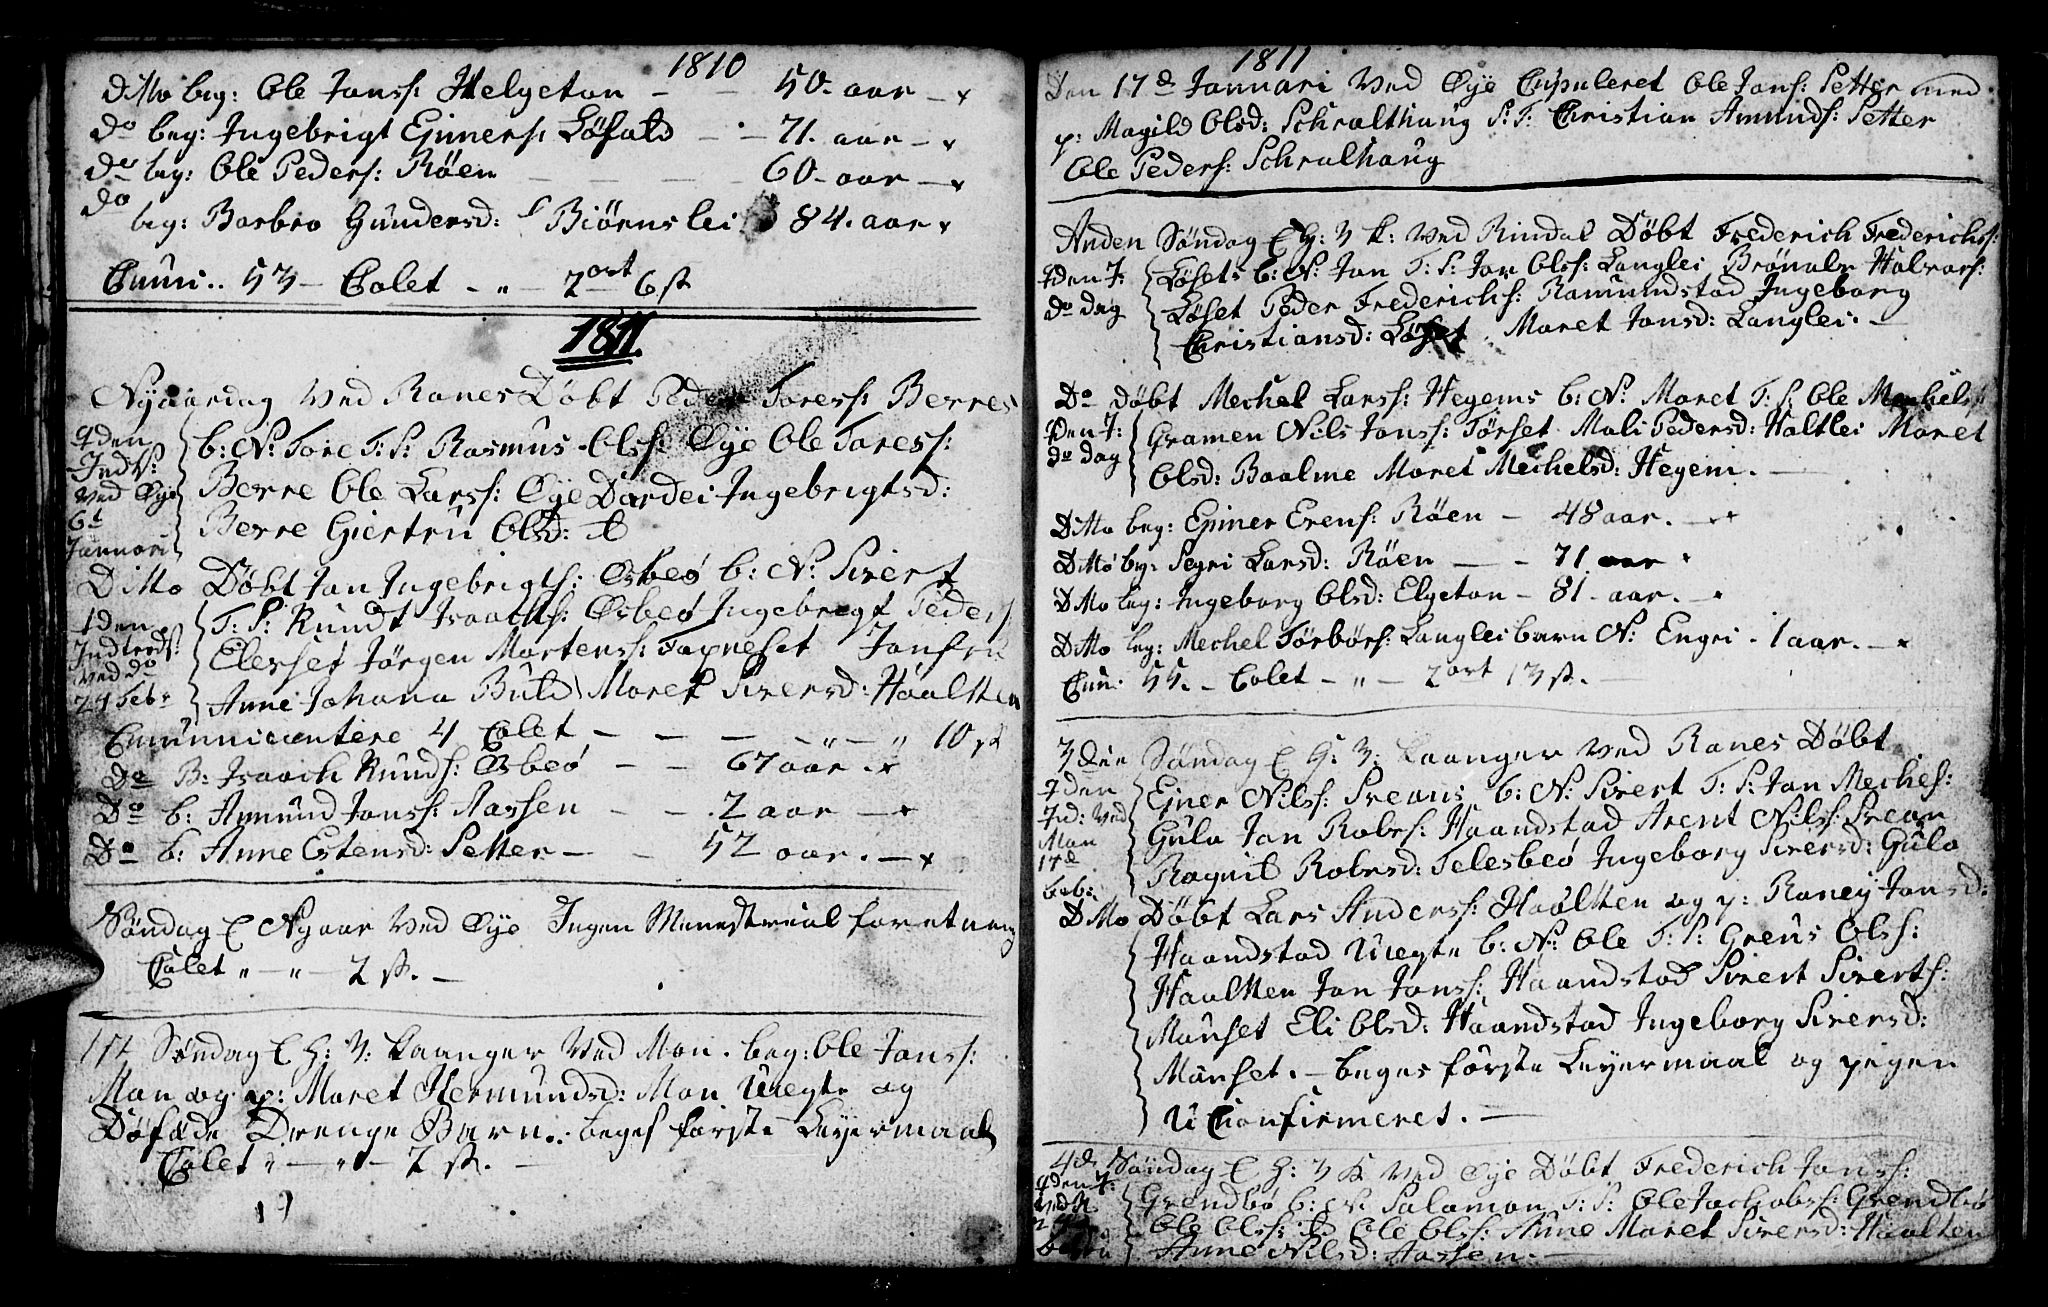 1810
Ditto beg: Ole Jonss: Helgeton — — 50. aar —
do beg: Ingebrigt Ejners: Løfald — — 71. aar —
do beg: Ole Peders: Røen — — — 60. aar —
do
beg: Barbro Gundersd: Biørnslei 84. aar
Cmuni.. 53 — Colet - „ - 2 ort 6 s
1811
Nyaarsdag Ved Ranes Døbt Peder Toress: Berres
qden
Indt:
Ved Øye
6t
Januari
b: N: Tore T: S: Rasmus Olss: Øye Ole Toress:
Berre Ole Larss: Øye Dardei Ingebrigtsd:
Berre Giertru Olsd:
Ditto Døbt Jon Ingebrigts: Øsbeø b: N: Sivert
qden
Indtreds:
Ved do
24 Feb:
T: S: Kundt Isaachs: Øsbeø Ingebregt Peders
Elesset Jørgen Mortens: Fagneset Jonfru
Anne Johana Buld Maret Siversd: Haaltten
Cmunnicentere 4 Colet — — — „ — „ 10 s
Do B: Isaach Kunds: Øsbeø — — 67 aar
Do b: Amund Jonss: Aassen — — 2 aar —
Do b: Anne Estensd: Setter — — 52 aar. —
Søndag E Nyaar Ved Øye Ingen Menestreial foretning
Colet „ — „ — 2 s. —
1st Søndag E H: 3: Kaanger Ved Mon. beg: Ole Jonss:
Mon og p: Maret Hermundsd: Mon Uegte og
Døføde Drenge Barn.. beges første Leyermaal
Colet „ — „ — 2 s. —
19
1811
Den 17de Januari Ved Øye Cupuleret Ole Jons: Setter med
p: Magild Olsd: Schralthaug S: T: Christian Amunds: Setter
Ole Peders: Schralhaug
Anden Søndag E H: 3 K: Ved Rindal Døbt Frederich Frederichs:
qden J:
do dag
Løsets b: N: Jon T: S: Jor Olss: Langlei Brønalv Halvors:
Løset Peder Frederichs: Romundstad Ingeborg
Christiansd: Løset Maret Jonsd: Langlei. —
Do Døbt Mechel Larss: Hegems b: N: Maret T: S: Ole Mechels:
qden J:
do dag
Gramen Nils Jonss: Tørset Mali Pedersd: Haltlei Maret
Olsd: Baalme Maret Mechelsd: Hegem. —
Ditto beg: Ejner Evens: Røen — 48 aar. —
Ditto beg: Segri Larsd: Røen — — 71. aar
Ditto beg: Ingeborg Olsd: Elgeton — 81 — aar. —
Ditto beg: Mechel Tørbørs: Langlei barn N: Engri. 1 aar. —
Cuni 55. — Colet — „ — 2 ort 13 s. —
3die Søndag E H: 3: Kaanger Ved Ranes Døbt
qden
Ind: Ved
Mon
17de
feb:
Ejner Nilss: Sveans b: N: Sivert T: S: Jon Meches:
Gula Jon Robrs: Haandstad Arent Nilss: Svean
Ragnil Robrsd: Telesbeø Ingeborg Siversd: Gula
Ditto Døbt Lars Anderss: Haaltten og p: Raney Jonsd:
Haandstad Uegte b: N: Ole T: S: Greus Olss:
Haaltten Jon Jonss: Haandstad Sivert Siverts:
Maüset Eli Olsd: Haandstad Ingeborg Siversd:
Maüset. — beges første Leyermaal og pigen
U Chonfirmeret. —
4de Søndag E H: 3 K Ved Øye Døbt Frederich Jonss:
qden J:
Grendbø b: N: Salamon T: S: Ole Jachobss: Grendbø
Ole Olss: Ole Olss: Anne Maret Siversd: Haaltten
Anne Nilsd: Aassen. —